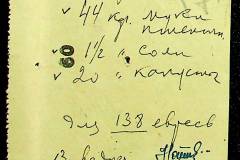 ✓ 44 кг. муки
пшеничн.
60
✓ 1½ " соли
✓ 20 " капусты
для 138 евреев
13